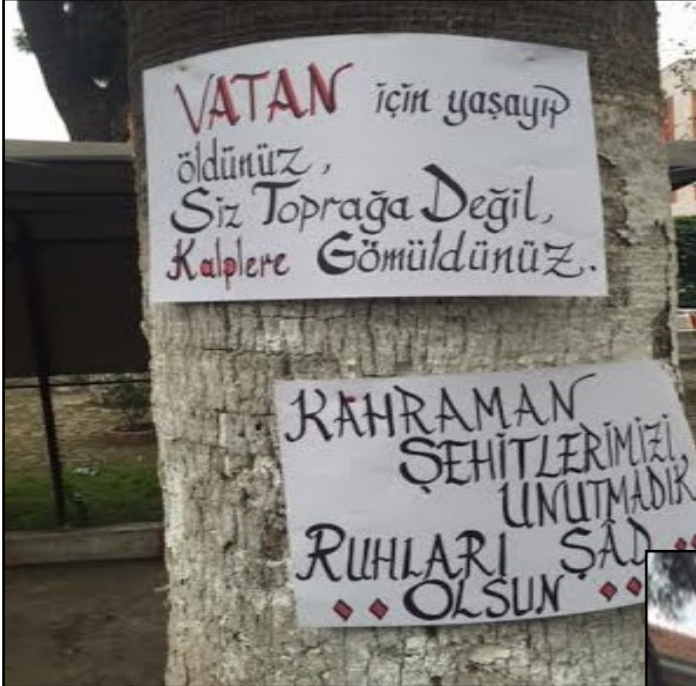 VATAN için yaşayıp
öldünüz,
Siz Toprağa Değil,
Kalplere Gömüldünüz.
KAHRAMAN
ŞEHİTLERİMİZİ,
UNUTMADIK
RUHLARI ŞÂD
OLSUN